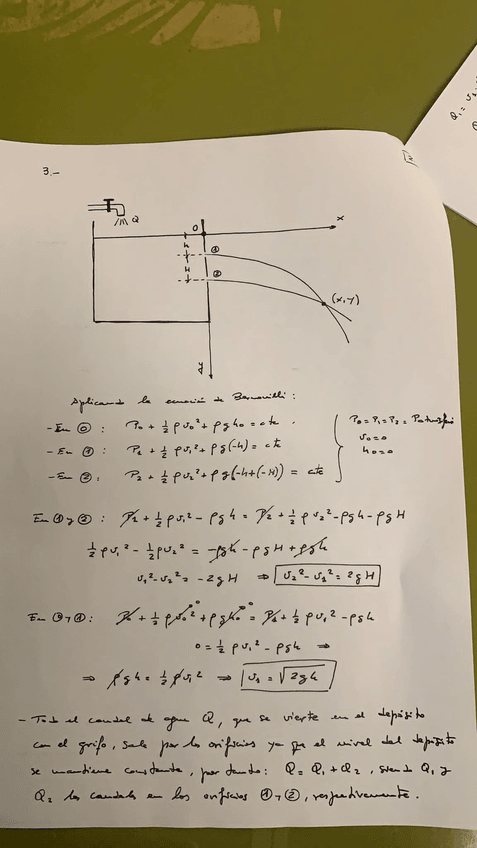 Q₁ =
3.-
Q
0
x
①
h
H
②
(x, y)
y
Aplicando la ecuación de Bernouilli:
- En ⓪: P₀ + ½ ρ v₀² + ρ g h₀ = cte.
- En ①: P₁ + ½ ρ v₁² + ρ g (-h) = cte
- En ②: P₂ + ½ ρ v₂² + ρ g (-h+(-H)) = cte
P₀ = P₁ = P₂ =
v₀ = 0
h₀ = 0
En ① y ②: P₁ + ½ ρ v₁² - ρ g h = P₂ + ½ ρ v₂² - ρ g h - ρ g H
½ ρ v₁² - ½ ρ v₂² = - ρ g h - ρ g H + ρ g h
v₁² - v₂² = - 2 g H ⇒ v₂² - v₁² = 2 g H
En ⓪ y ①: P₀ + ½ ρ v₀² + ρ g h₀ = P₁ + ½ ρ v₁² - ρ g h
0 = ½ ρ v₁² - ρ g h ⇒
⇒ ρ g h = ½ ρ v₁² ⇒ v₁ = √2 g h
- Todo el caudal de agua Q, que se vierte en el depósito
con el grifo, sale por los orificios ya que el nivel del depósito
se mantiene constante, por tanto: Q = Q₁ + Q₂, siendo Q₁ y
Q₂ los caudales en los orificios ① y ②, respectivamente.